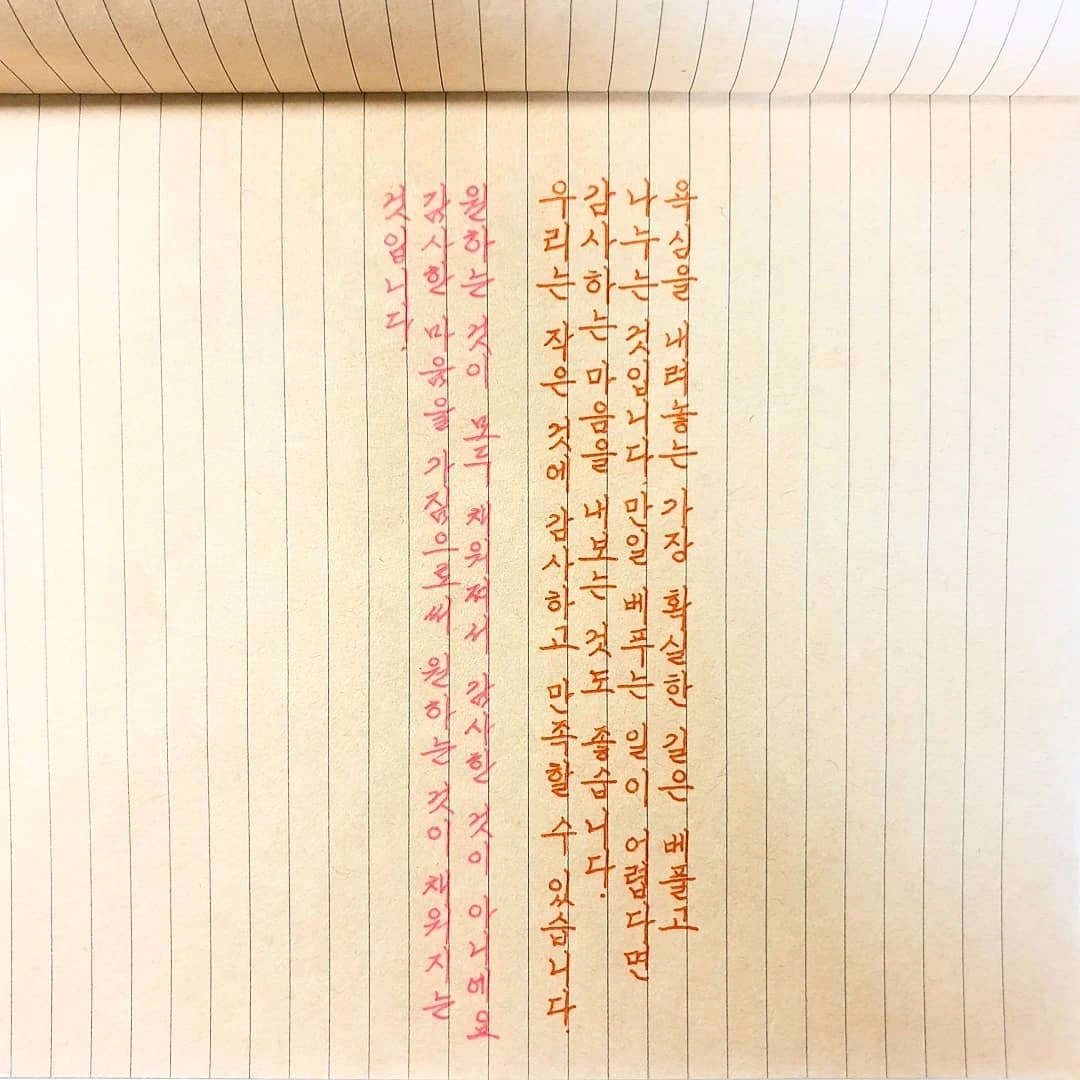 욕심을 내려놓는 가장 확실한 길은 베풀고
나누는 것입니다. 만일 베푸는 일이 어렵다면
감사하는 마음을 내보는 것도 좋습니다.
우리는 작은 것에 감사하고 만족할 수 있습니다.
원하는 것이 모두 채워져서 감사한 것이 아니에요
감사한 마음을 가짐으로써 원하는 것이 채워지는
것입니다.